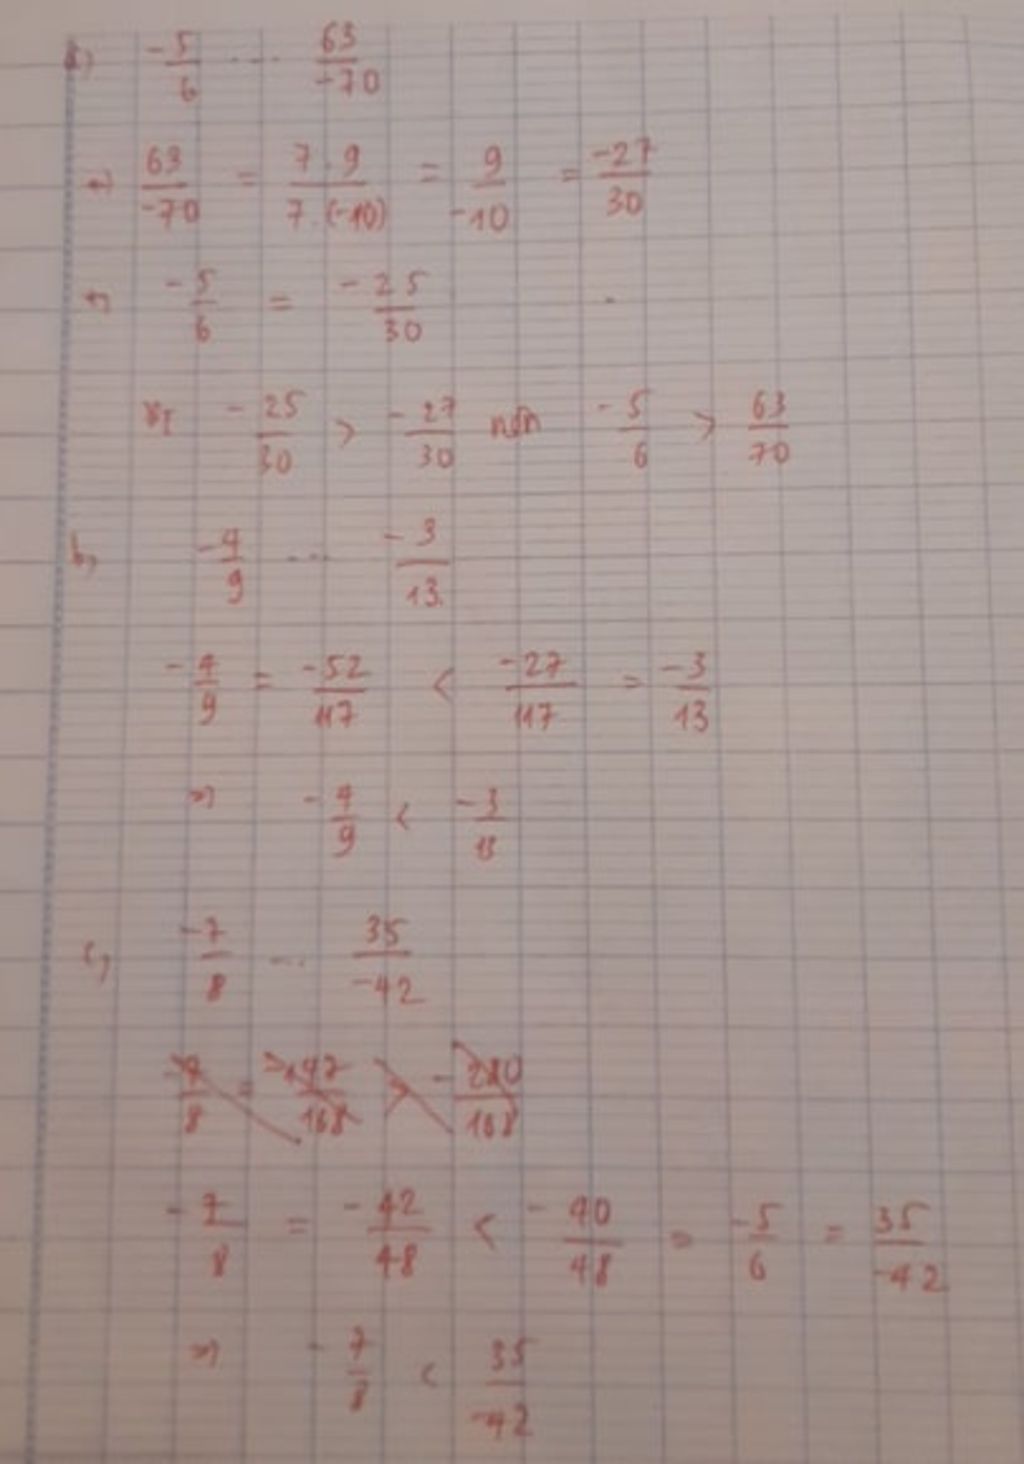 a) -5/6 ... 63/-70
+) 63/-70 = 7.9/7.(-10) = 9/-10 = -27/30
+) -5/6 = -25/30
Vì -25/30 > -27/30 nên -5/6 > 63/70
b, -4/9 ... -3/13
-4/9 = -52/117 < -27/117 = -3/13
=> -4/9 < -3/13
c, -7/8 ... 35/-42
-7/8 = -147/168 > -280/168
-7/8 = -42/48 < -40/48 = -5/6 = 35/-42
=> -7/8 < 35/-42